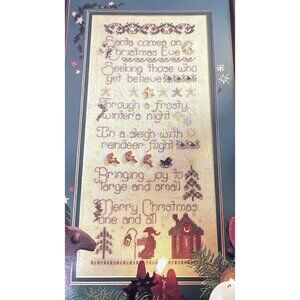 Santa comes on
Christmas Eve
Seeking those who
yet believe
Through a frosty
winter's night
In a sleigh with
reindeer flight
Bringing joy to
large and small
Merry Christmas
one and all